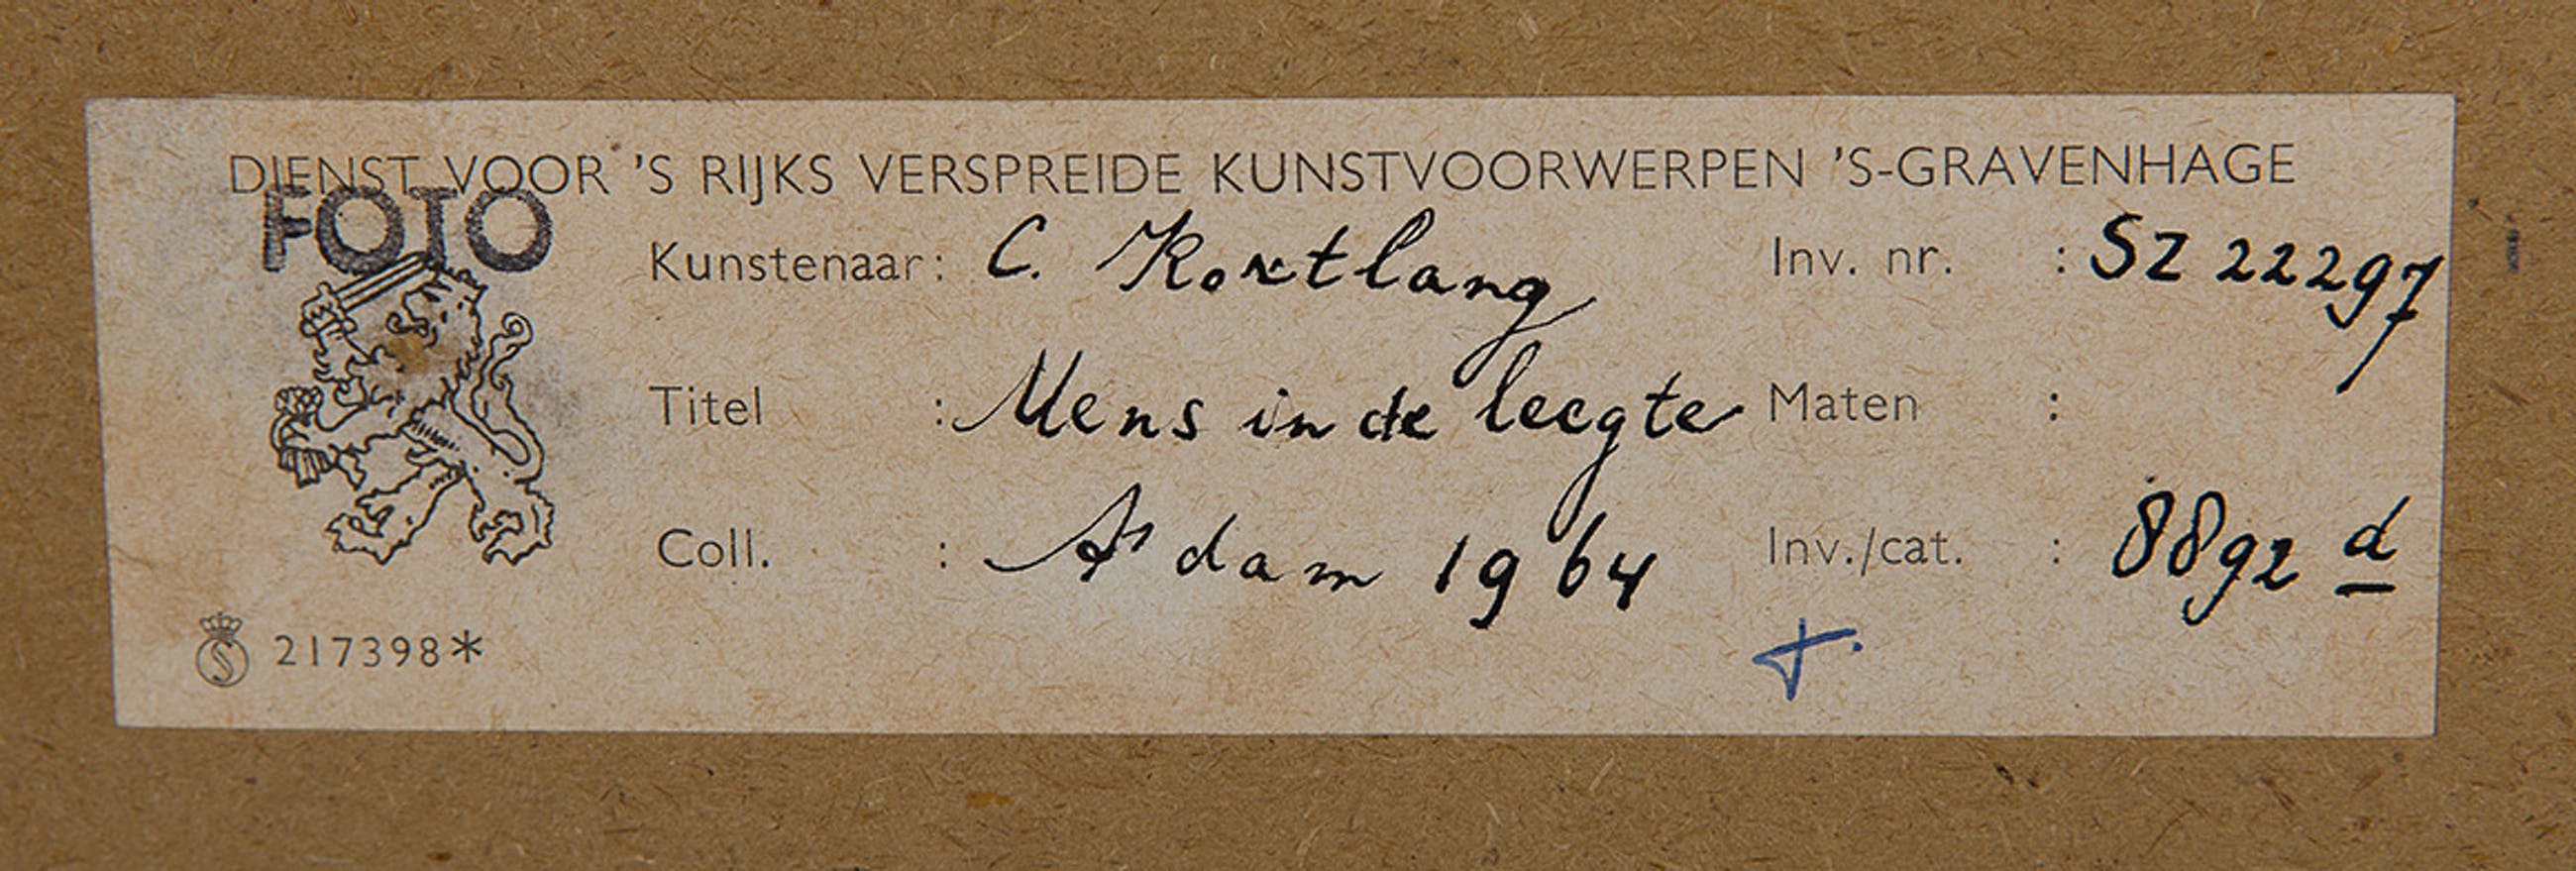 DIENST VOOR 'S RIJKS VERSPREIDE KUNSTVOORWERPEN 'S-GRAVENHAGE
FOTO
Kunstenaar: C. Kortlang Inv. nr. : SZ 22297
Titel : Mens in de leegte Maten :
Coll. : A'dam 1964 Inv./cat. : 8892 d
217398*